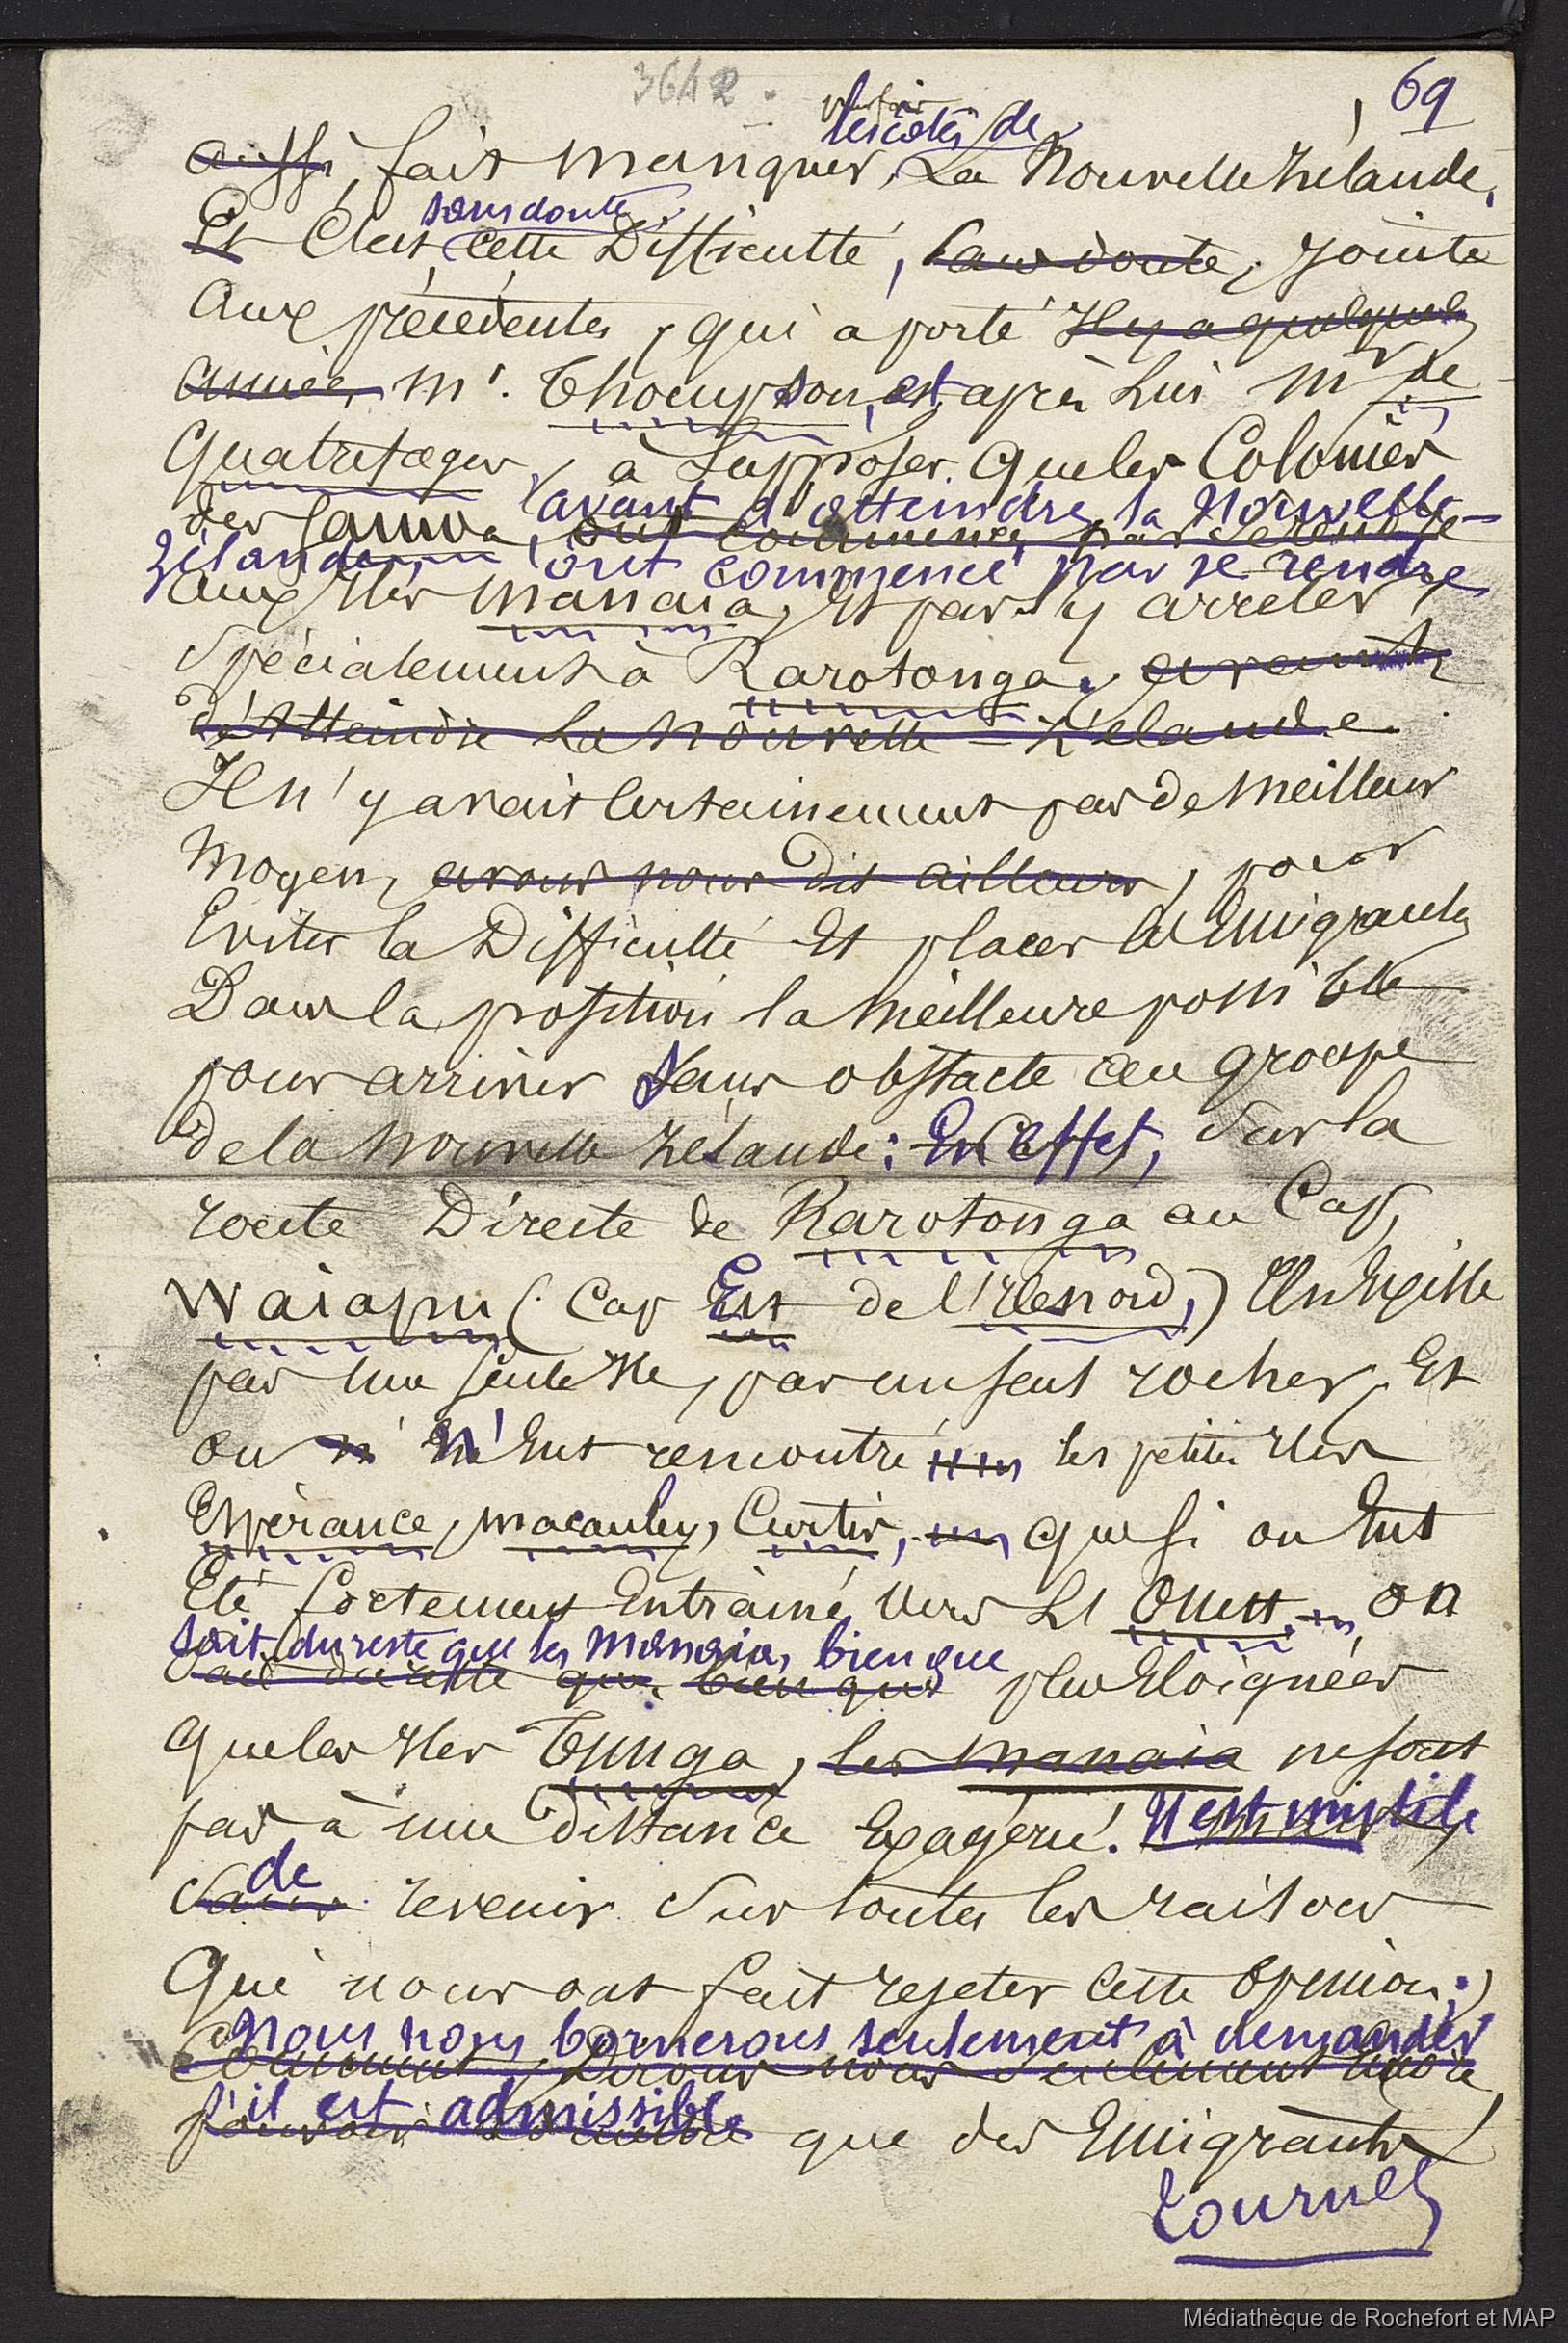 3642.
69
les côtes de
aussi, fait manquer, La Nouvelle Zélande,
sans doute
Et C'est, cette Difficulté, sans doute, jointe
Aux précédentes, qui a porté Il y a quelques
années, Mr. Thompson, et, après Lui Mr de
Quatrefages, à Supposer que les Colonies
avant d'atteindre la Nouvelle-
des Samoa, ont commencé par se rendre
Zélande, ont commencé par se rendre
aux Iles Manaia, Et par s'y arrêter,
Spécialement à Rarotonga, avant
d'Atteindre La Nouvelle-Zélande.
Il n'y avait Certainement pas de Meilleur
Moyen, avons nous Dit ailleurs, pour
Eviter la Difficulté Et placer les Emigrants
Dans la position la Meilleure possible
pour arriver Sans obstacle au groupe
De la Nouvelle Zélande: En Effet, Sur la
route Directe de Rarotonga au Cap,
Waiapu (Cap Est de l'Ile nord,) Il n'Existe
pas une seule Ile, par un seul rocher, Et
on n' N'Eut rencontré les petites Iles
Espérance, Macauley, Curtis, que si on Eut
Eté fortement Entrainé Vers L'Ouest. On
sait du reste que les Manaia, bien que
Sait du reste que, bien que plus Eloignées
Que les Iles Tunga, les Manaia ne sont
pas à une distance Exagérée. Il est inutile
de
Sans revenir Sur toutes les raisons
Qui nous ont fait rejeter Cette Opinion;
Nous nous bornerons seulement à demander
Comment, Dirons nous Seulement Encore,
s'il est admissible
que des Emigrants
Tournez
Médiathèque de Rochefort et MAP